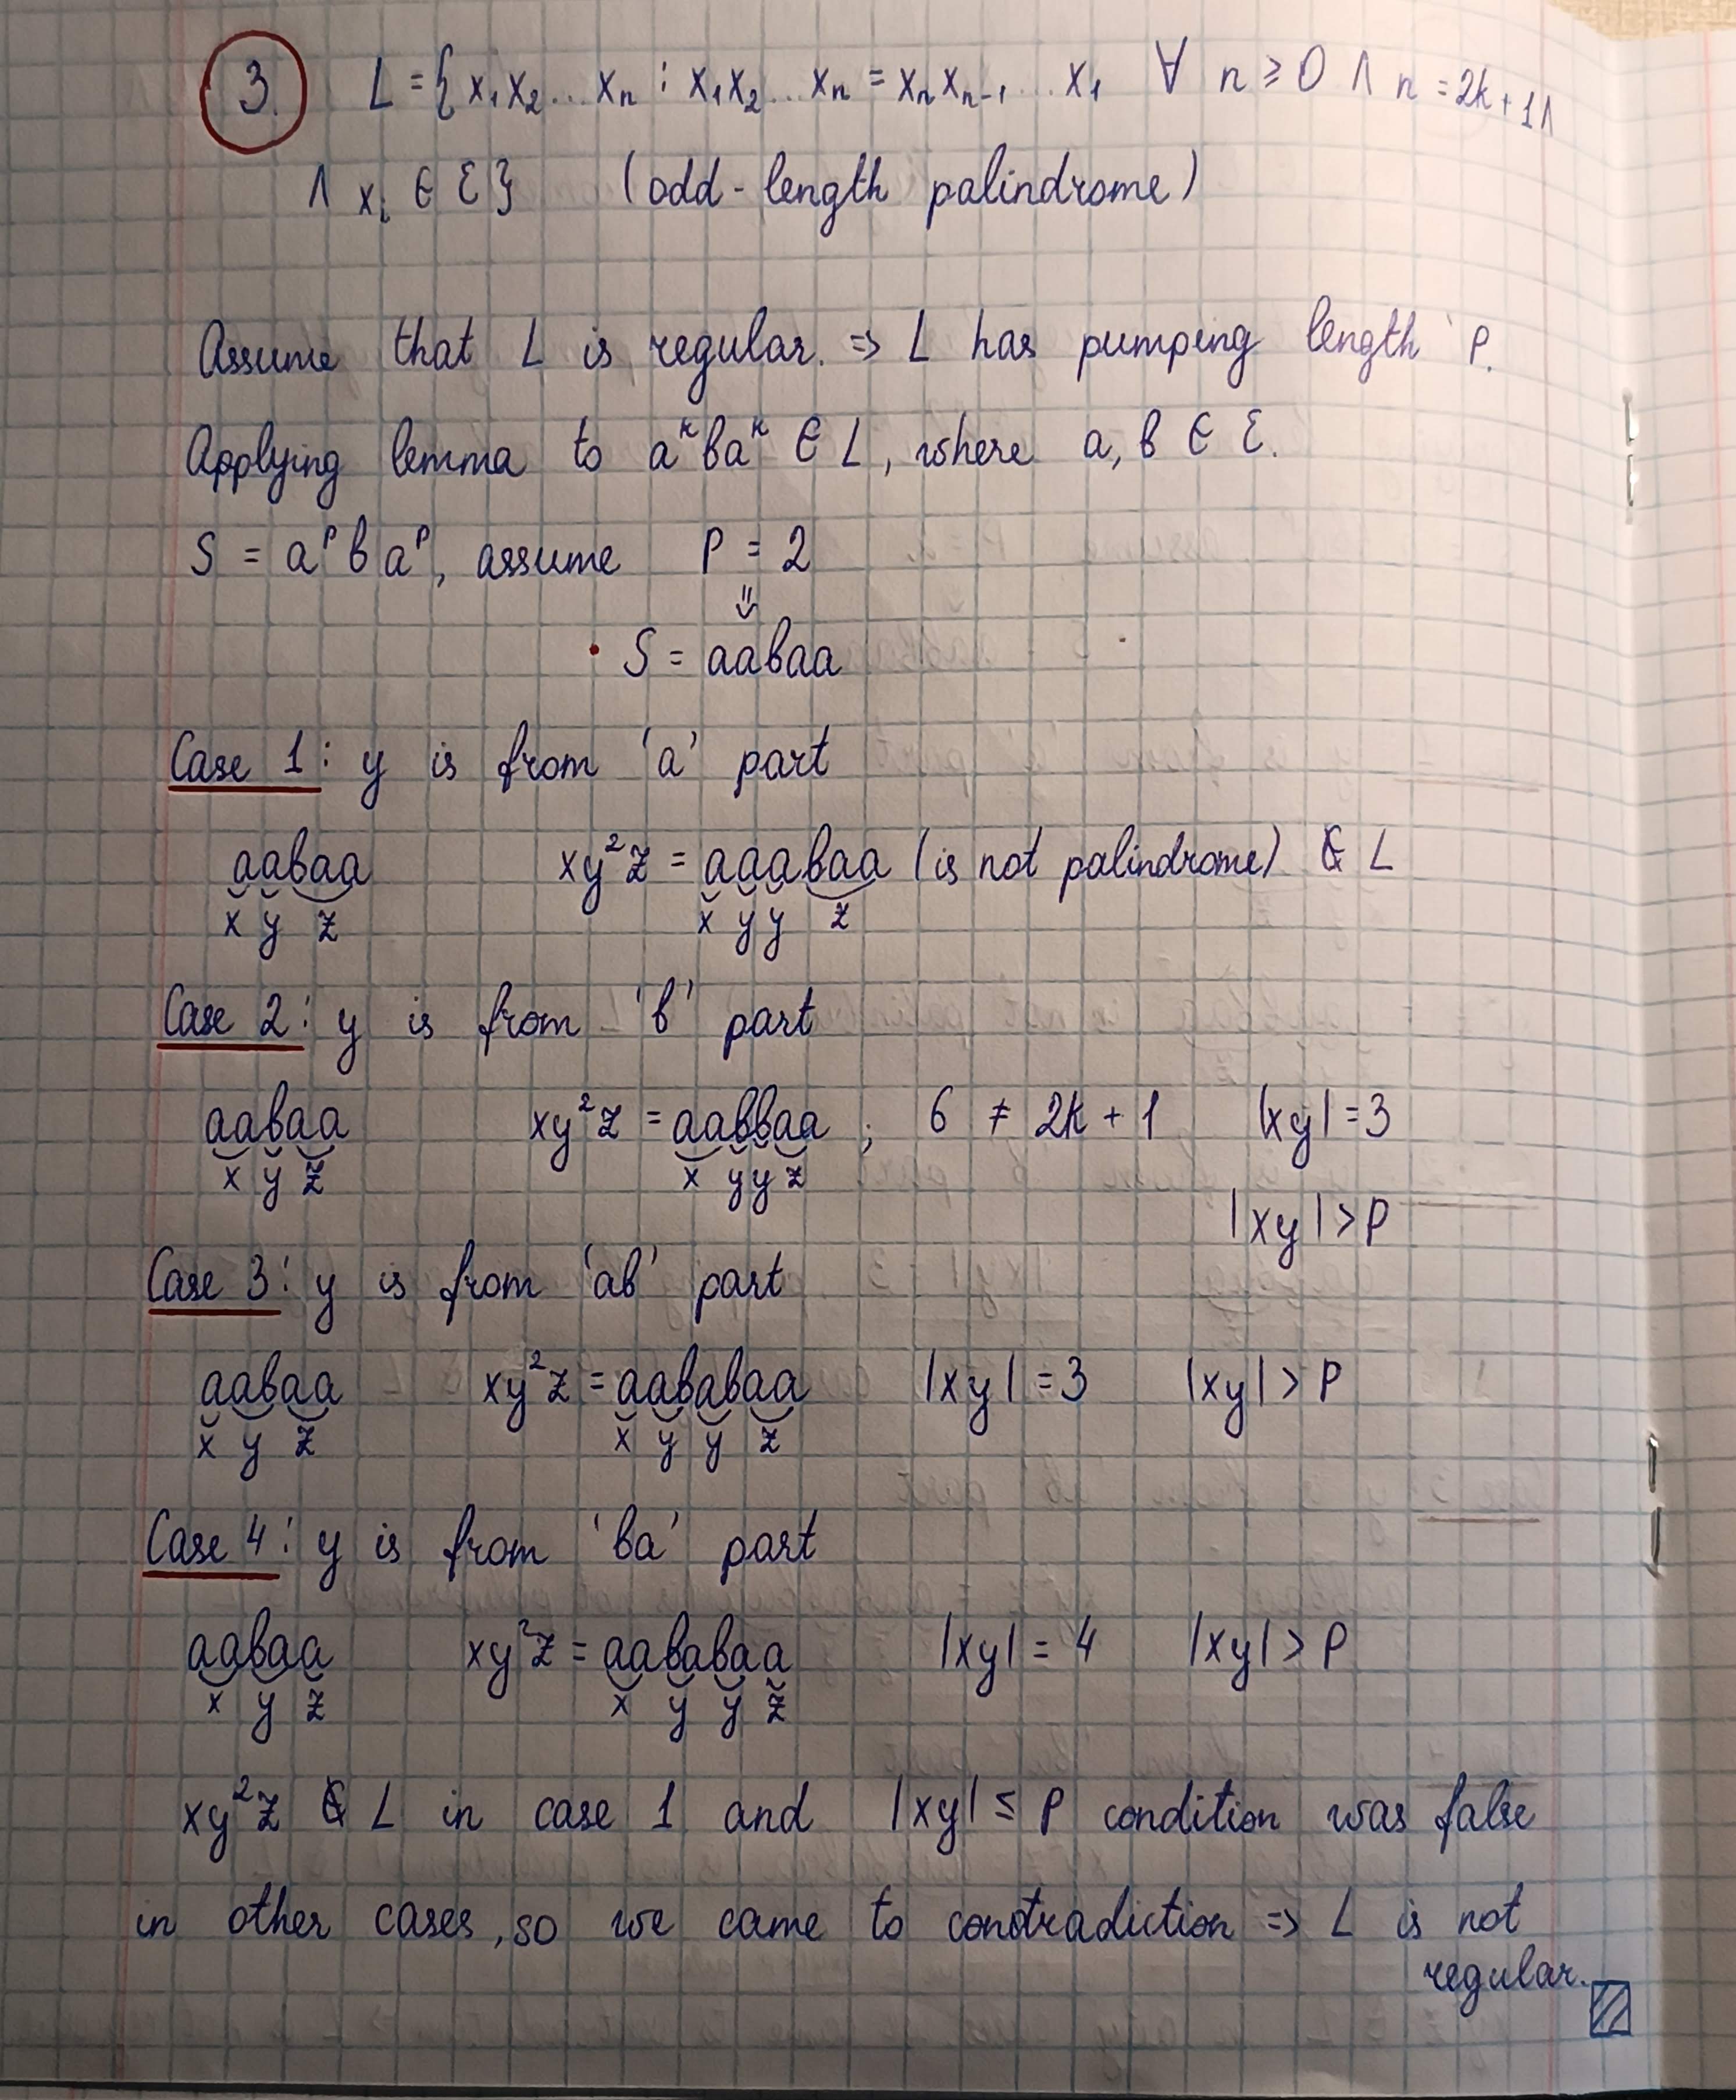 3. L = { x₁x₂...xₙ : x₁x₂...xₙ = xₙxₙ₋₁...x₁ ∀ n ≥ 0 ∧ n = 2k+1 ∧
∧ xᵢ ∈ Ɛ } (odd-length palindrome)
Assume that L is regular. => L has pumping length P.
Applying lemma to aᵏbaᵏ ∈ L, where a, b ∈ Ɛ.
S = aᵖbaᵖ, assume P = 2
⇓
S = aabaa
Case 1: y is from 'a' part
aabaa xy²z = aaabaa (is not palindrome) ∉ L
x y z x y y z
Case 2: y is from 'b' part
aabaa xy²z = aabbaa ; 6 ≠ 2k + 1 |xy| = 3
x y z x y y z
|xy| > P
Case 3: y is from 'ab' part
aabaa xy²z = aababaa |xy| = 3 |xy| > P
x y z x y y z
Case 4: y is from 'ba' part
aabaa xy²z = aababaa |xy| = 4 |xy| > P
x y z x y y z
xy²z ∉ L in case 1 and |xy| ≤ P condition was false
in other cases, so we came to contradiction => L is not
regular.